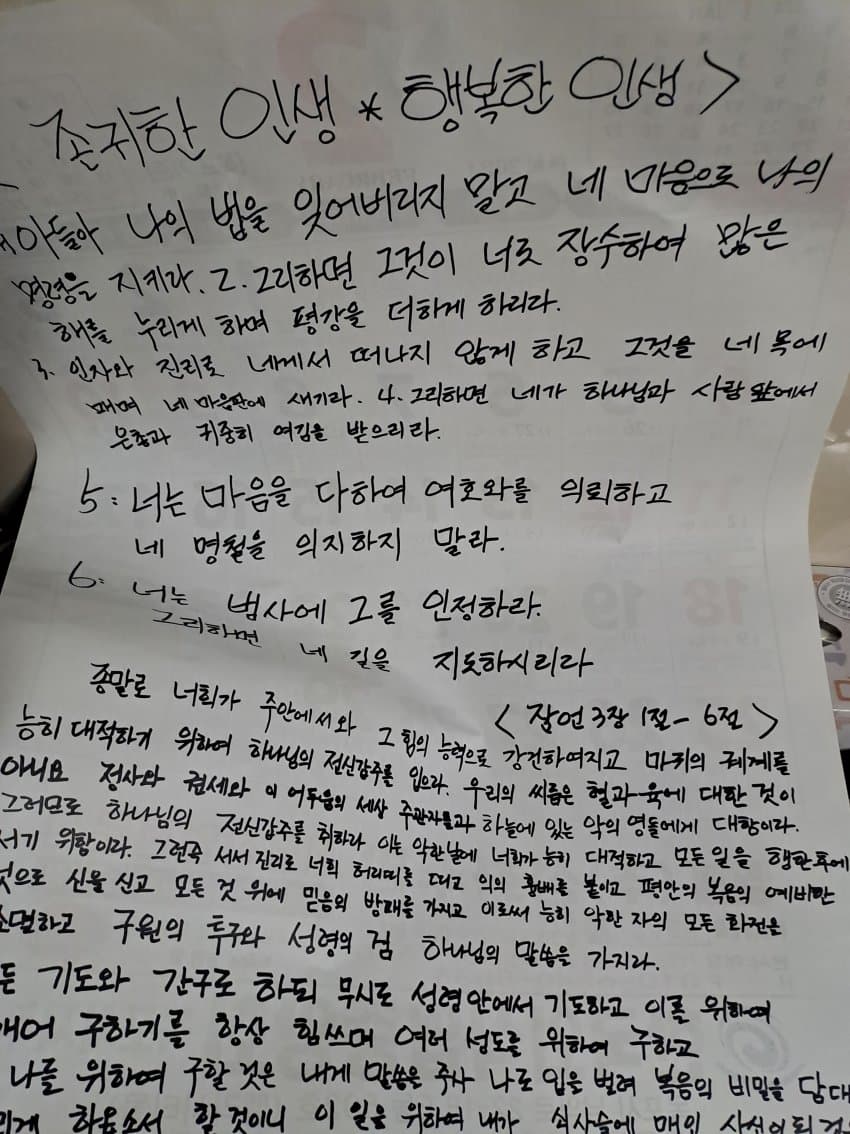 존귀한 인생 * 행복한 인생 >
아들아 나의 법을 잊어버리지 말고 네 마음으로 나의
명령을 지키라. 2. 그리하면 그것이 너로 장수하여 많은
해를 누리게 하며 평강을 더하게 하리라.
3. 인자와 진리로 네게서 떠나지 않게 하고 그것을 네 목에
매며 네 마음판에 새기라. 4. 그리하면 네가 하나님과 사람 앞에서
은총과 귀중히 여김을 받으리라.
5: 너는 마음을 다하여 여호와를 의뢰하고
네 명철을 의지하지 말라.
6: 너는 범사에 그를 인정하라.
그리하면 네 길을 지도하시리라
< 잠언 3장 1절 - 6절 >
종말로 너희가 주안에서와 그 힘의 능력으로 강건하여지고 마귀의 궤계를
능히 대적하기 위하여 하나님의 전신갑주를 입으라. 우리의 씨름은 혈과 육에 대한 것이
아니요 정사와 권세와 이 어두움의 세상 주관자들과 하늘에 있는 악의 영들에게 대함이라.
그러므로 하나님의 전신갑주를 취하라 이는 악한날에 너희가 능히 대적하고 모든 일을 행한후에
서기 위함이라. 그런즉 서서 진리로 너희 허리띠를 띠고 의의 흉배를 붙이고 평안의 복음의 예비한
것으로 신을 신고 모든 것 위에 믿음의 방패를 가지고 이로써 능히 악한 자의 모든 화전을
소멸하고 구원의 투구와 성령의 검 하나님의 말씀을 가지라.
든 기도와 간구로 하되 무시로 성령안에서 기도하고 이를 위하여
깨어 구하기를 항상 힘쓰며 여러 성도를 위하여 구하고
나를 위하여 구할 것은 내게 말씀을 주사 나로 입을 벌려 복음의 비밀을 담대
하옵소서 할 것이니 이 일을 위하여 내가 쇠사슬에 매인 사신이 된 것은
18 19